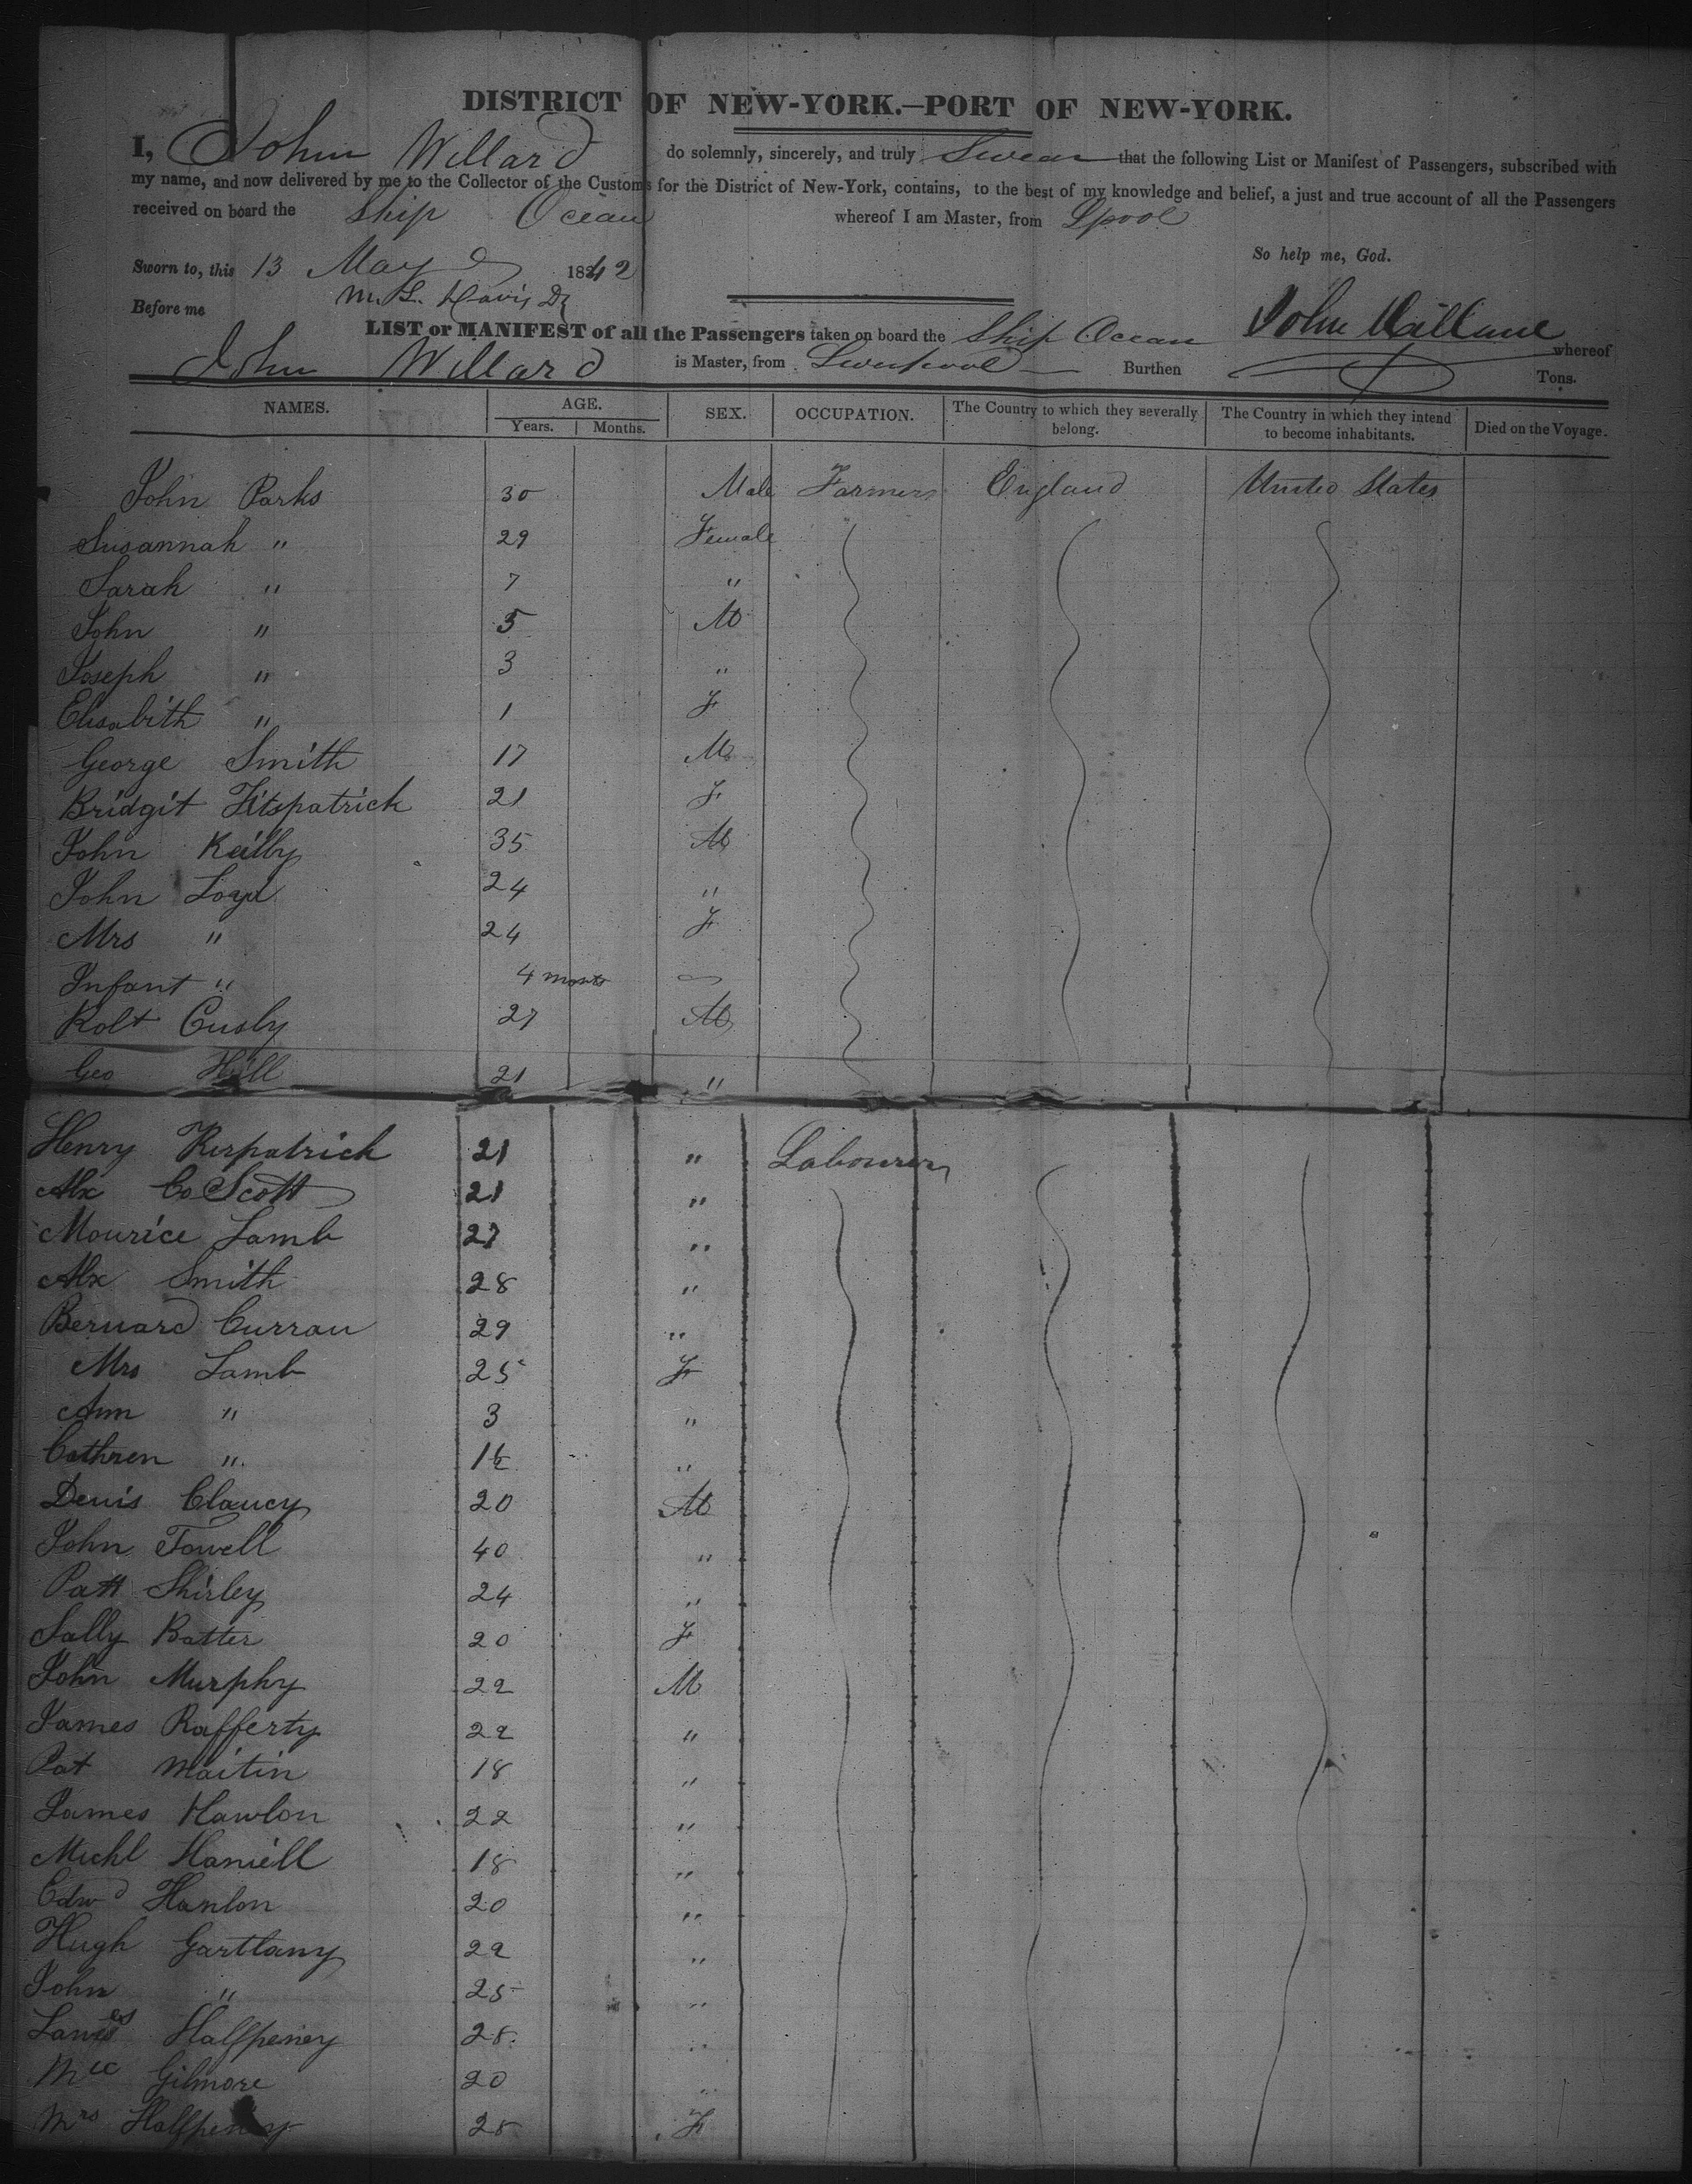 DISTRICT OF NEW-YORK.—PORT OF NEW-YORK.
I, John Willard do solemnly, sincerely, and truly Swear that the following List or Manifest of Passengers, subscribed with
my name, and now delivered by me to the Collector of the Customs for the District of New-York, contains, to the best of my knowledge and belief, a just and true account of all the Passengers
received on board the Ship Ocean whereof I am Master, from Lpool
So help me, God.
Sworn to, this 13 May 1842
Before me M. L. Davis
John Willard
LIST or MANIFEST of all the Passengers taken on board the Ship Ocean whereof
John Willard is Master, from Liverpool Burthen Tons.
NAMES. AGE. Years. Months. SEX. OCCUPATION. The Country to which they severally belong. The Country in which they intend to become inhabitants. Died on the Voyage.
John Parks 30 Male Farmers England United States
Susannah " 29 Female
Sarah " 7 "
John " 5 M
Joseph " 3 "
Elisabith " 1 F
George Smith 17 M
Bridgit Fitspatrick 21 F
John Keilly 35 M
John Loyd 24 "
Mrs " 24 F
Infant " 4 monts
Robt Cusby 27 M
Geo Hill 21 "
Henry Kirpatrick 21 " Labourers
Alx Co Scott 21 "
Mourice Lamb 27 "
Alx Smith 28 "
Bernard Curran 29 "
Mrs Lamb 25 F
Ann " 3 "
Cathren " 1½ "
Denis Clancy 20 M
John Fowell 40 "
Patt Shirley 24 "
Sally Batter 20 F
John Murphy 22 M
James Rafferty 22 "
Pat Maitin 18 "
James Hawlon 22 "
Michl Haniell 18 "
Edwd Hanlon 20 "
Hugh Gartlany 22 "
John " 25 "
James Halfpeney 28 "
Gilmore 20 "
Mrs Halfpeney 28 F